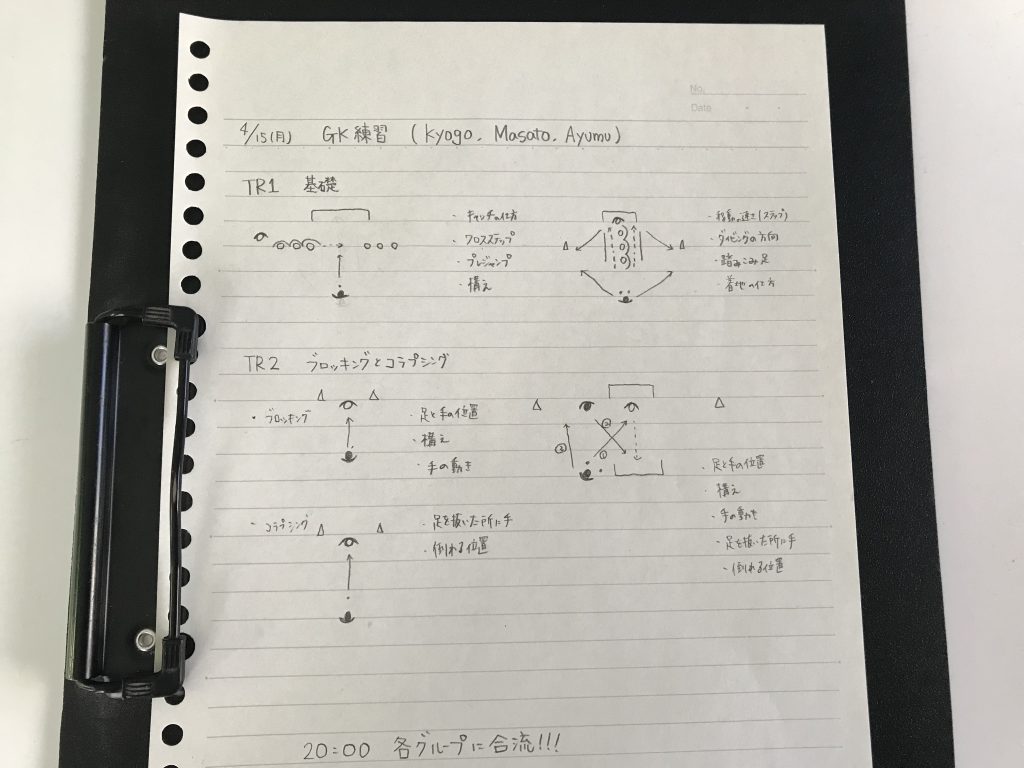 No.
Date
4/15(月) GK練習 (Kyogo. Masato. Ayumu)
TR1 基礎
・キャッチの仕方
・クロスステップ
・プレジャンプ
・構え
・移動の速さ(ステップ)
・ダイビングの方向
・踏みこみ足
・着地の仕方
TR2 ブロッキングとコラプシング
・ブロッキング
・足と手の位置
・構え
・手の動き
① ② ③
・足と手の位置
・構え
・手の動き
・足を抜いた所に手
・倒れる位置
・コラプシング
・足を抜いた所に手
・倒れる位置
20:00 各グループに合流!!!